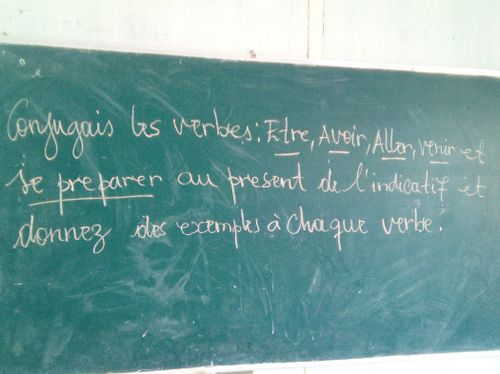 Conjugais les verbes: Etre, Avoir, Aller, venir et
se preparer au present de l'indicatif et
donnez des exemples à chaque verbe.